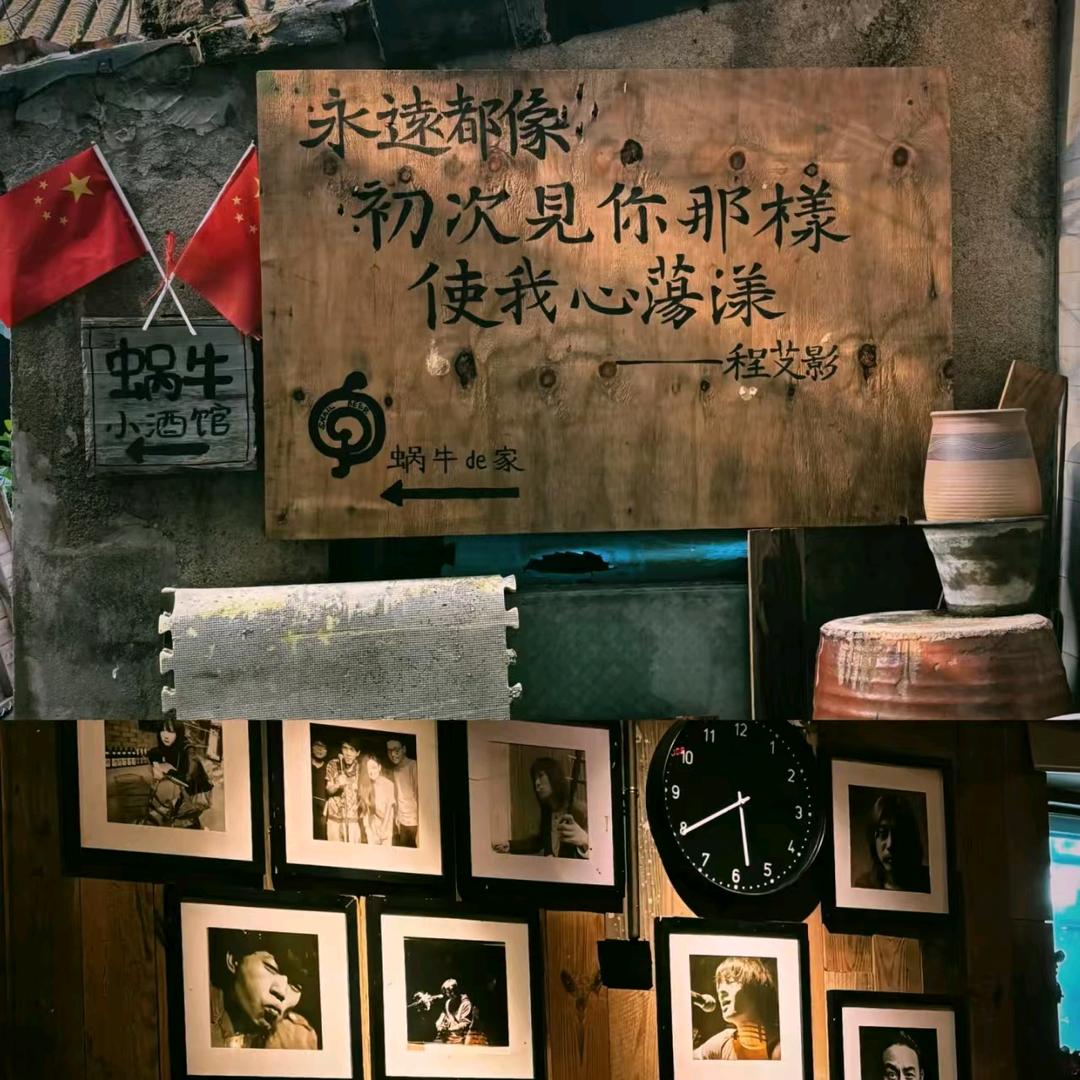 永遠都像
初次見你那樣
使我心蕩漾
——程艾影
蝸牛de家
蜗牛
小酒馆
12
11
1
10
2
9
3
4
7
5
6